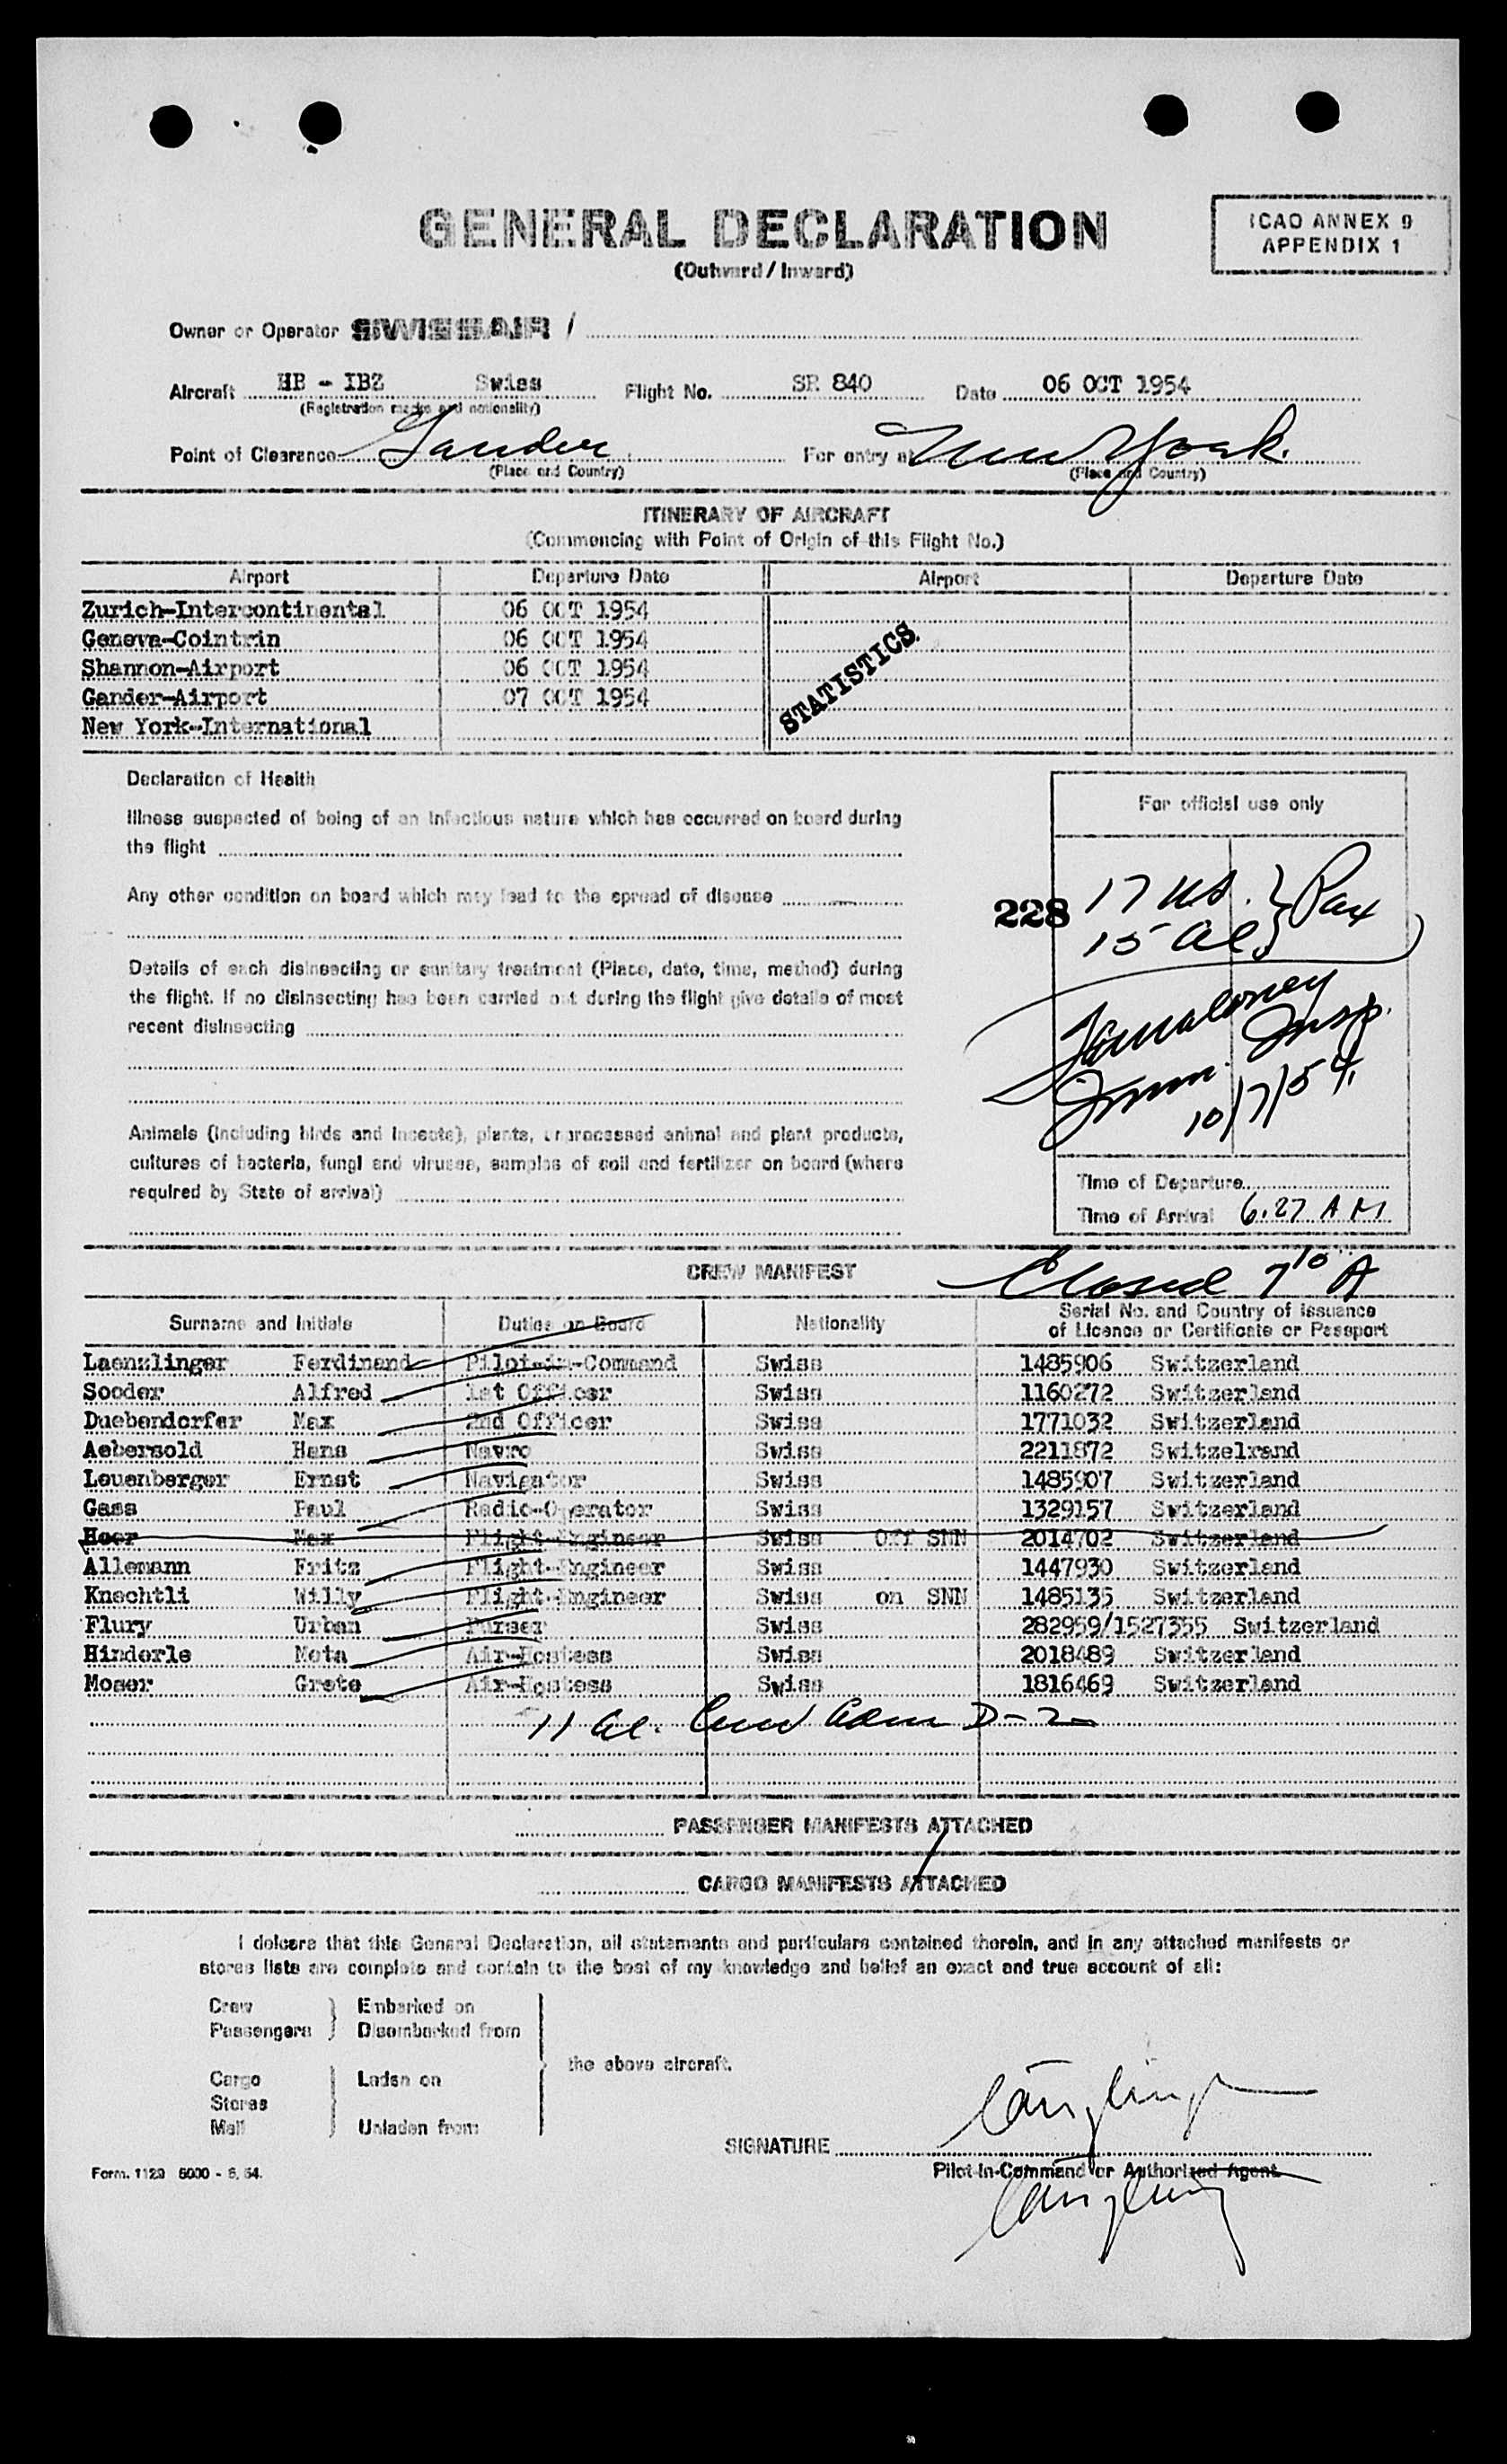 GENERAL DECLARATION
(Outward / Inward)
ICAO ANNEX 9
APPENDIX 1
Owner or Operator SWISSAIR /
Aircraft HB - IBZ Swiss Flight No. SR 840 Date 06 OCT 1954
(Registration marks and nationality)
Point of Clearance Gander For entry at New York.
(Place and Country) (Place and Country)
ITINERARY OF AIRCRAFT
(Commencing with Point of Origin of this Flight No.)
Airport Departure Date Airport Departure Date
Zurich-Intercontinental 06 OCT 1954
Geneva-Cointrin 06 OCT 1954
Shannon-Airport 06 OCT 1954
Gander-Airport 07 OCT 1954
New York-International
STATISTICS
Declaration of Health
Illness suspected of being of an infectious nature which has occurred on board during
the flight
Any other condition on board which may lead to the spread of disease
Details of each disinsecting or sanitary treatment (Place, date, time, method) during
the flight. If no disinsecting has been carried out during the flight give details of most
recent disinsecting
Animals (including birds and insects), plants, unprocessed animal and plant products,
cultures of bacteria, fungi and viruses, samples of soil and fertilizer on board (where
required by State of arrival)
For official use only
228
17 US. } Pax
15 Al }
Maloney
Imm. Insp.
10/7/54
Time of Departure
Time of Arrival 6.27 A M
CREW MANIFEST
Closed 7 10 A
Surname and Initials Duties on Board Nationality Serial No. and Country of Issuance
of Licence or Certificate or Passport
Laenzlinger Ferdinand Pilot-in-Command Swiss 1485906 Switzerland
Sooder Alfred 1st Officer Swiss 1160272 Switzerland
Duebendorfer Max 2nd Officer Swiss 1771032 Switzerland
Aebersold Hans Navro Swiss 2211872 Switzelrand
Leuenberger Ernst Navigator Swiss 1485907 Switzerland
Gass Paul Radio-Operator Swiss 1329157 Switzerland
Hoer Max Flight-Engineer Swiss Off SNN 2014702 Switzerland
Allemann Fritz Flight-Engineer Swiss 1447930 Switzerland
Knechtli Willy Flight-Engineer Swiss on SNN 1485135 Switzerland
Flury Urban Purser Swiss 282959/1527355 Switzerland
Hinderle Meta Air-Hostess Swiss 2018489 Switzerland
Moser Grete Air-Hostess Swiss 1816469 Switzerland
11 al. Crew Adm D-2
PASSENGER MANIFESTS ATTACHED
CARGO MANIFESTS ATTACHED
I delcare that this General Declaration, all statements and particulars contained therein, and in any attached manifests or
stores lists are complete and contain to the best of my knowledge and belief an exact and true account of all:
Crew } Embarked on
Passengers } Disembarked from
the above aircraft.
Cargo Laden on
Stores
Mail Unladen from
SIGNATURE Länzlinger
Pilot-in-Command or Authorized Agent
Länzlinger
Form. 1129 5000 - 6, 54.